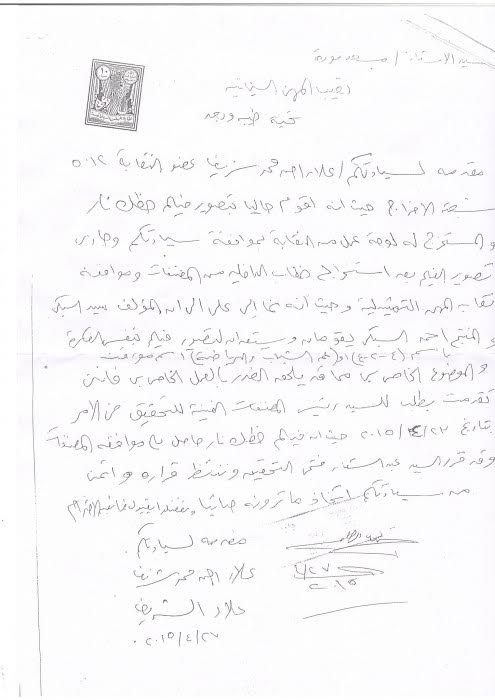 السيد الأستاذ / مسعد فودة
نقيب المهن السينمائية
تحية طيبة وبعد
مقدمه لسيادتكم / علاء احمد محمد شريف عضو النقابة ٥٠١٢
شعبة الاخراج حيث انه اقوم حاليا بتصوير فيلم حظك نار
و المستخرج له لوحة عمل من النقابة بموافقة سيادتكم وجارى
تصوير الفيلم بعد استخراج خطاب الداخلية من المصنفات وموافقة
نقابة المهن التمثيلية وحيث أنه نما الى على الى ان المؤلف
و المنتج احمد السبكى يقومان ويستعدان لتصوير فيلم بنفس الفكرة
باسم (٤-٢-٤)
و الموضوع الخاص بى مما قد يلحق الضرر بالعمل الخاص بى فاننى
تقدمت بطلب للسيد رئيس المصنفات الفنية للتحقيق في الأمر
بتاريخ ٢٠١٥/٤/٢٣ حيث ان فيلم حظك نار حاصل على موافقة المصنفات
وقد قرر السيد عبد الستار فتحى التحقيق وننتظر قراره و اتمنا
من سيادتكم اتخاذ ما ترونه صائبا وتفضلوا بقبول فائق الاحترام
مقدمه لسيادتكم
علاء احمد محمد شريف
علاء الشريف
٢٠١٥/٤/٢٧
٤/٢٧
٢٠١٥